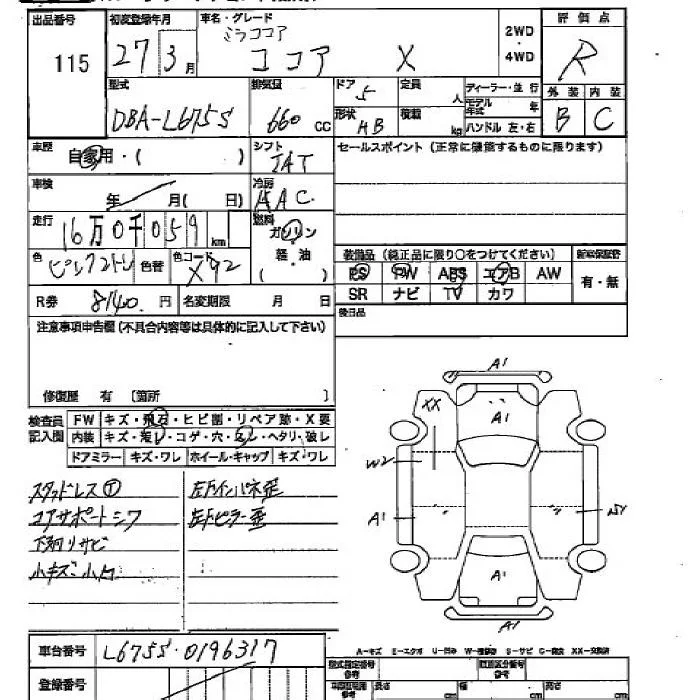 出品番号 初度登録年月 車名・グレード 評価点
115 27 3月 ミラココア
ココア X 2WD・4WD R
型式 排気量 ドア 定員 ディーラー・並行 外装 内装
DBA-L675S 660 cc 5 人 モデル年式 年 B C
形状 HB 積載 kg ハンドル 左・右
車歴 自家用・( ) シフト IAT セールスポイント(正常に機能するものに限ります)
車検 年 月( 日) 冷房 AAC
走行 16万0千059km 燃料 ガソリン・軽・油 ( )
色 ピンク2トン 色替 色コード X92
装備品(純正品に限り○をつけてください) 新車保証書
PS PW ABS エアB AW 有・無
SR ナビ TV カワ
R券 8140円 名変期限 月 日 後日品
注意事項申告欄(不具合内容等は具体的に記入して下さい)
修復歴 有 〔箇所 〕
検査員記入欄 FW キズ・飛石・ヒビ割・リペア跡・X要
内装 キズ・汚レ・コゲ・穴・ ・ヘタリ・破レ
ドアミラー キズ・ワレ ホイール・キャップ キズ・ワレ
スタッドレスⓉ 左Fインパネ歪
コアサポートシワ 左Fピラー歪
下廻りサビ
小キズ小凹
A1
XX A1
W2
A1
A1
A1
A-キズ E-エクボ U-凹み W-補修跡 S-サビ C-腐食 XX-交換済
車台番号 L675S-0196317
登録番号
型式指定番号 参考 類別区分番号 参考
参考 長さ cm 幅 cm 高さ cm